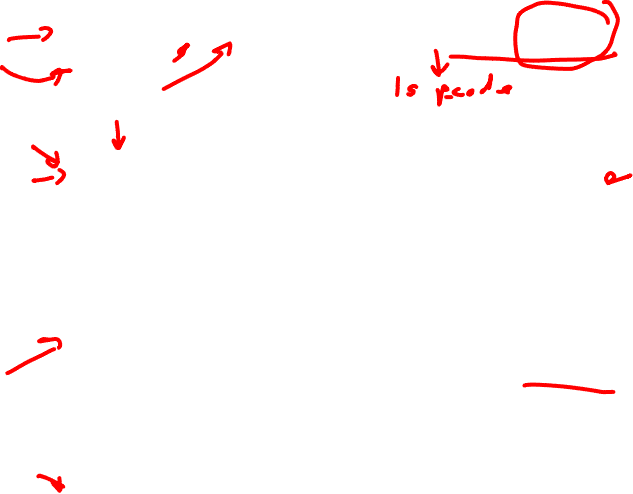 Is pcode